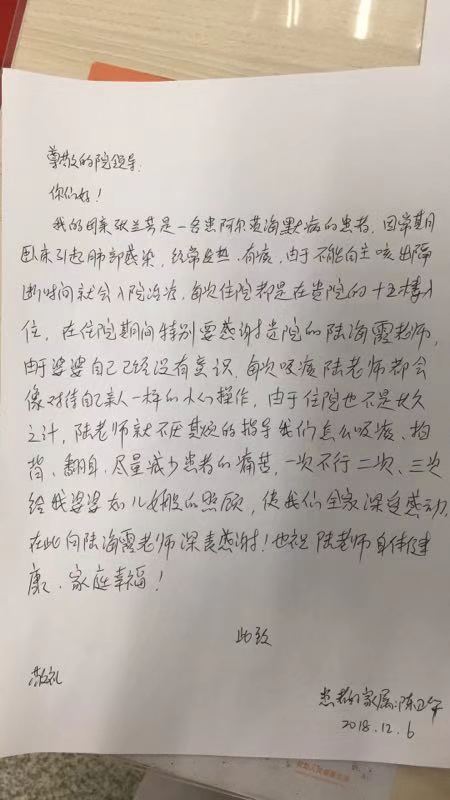 尊敬的院领导:
你们好!
我的母亲张兰芳是一名患阿尔茨海默病的患者,因常期
卧床引起肺部感染,经常发热、有痰,由于不能自主咳出隔
断时间就会入院治疗,每次住院都是在贵院的十五楼入
位,在住院期间特别要感谢贵院的陆海霞老师,
由于婆婆自己已经没有意识,每次吸痰陆老师都会
像对待自己亲人一样的小心操作,由于住院也不是长久
之计,陆老师就不厌其烦的指导我们怎么吸痰、拍
背、翻身,尽量减少患者的痛苦,一次不行二次、三次
给我婆婆如儿女般的照顾,使我们全家深受感动,
在此向陆海霞老师深表感谢!也祝陆老师身体健
康、家庭幸福!
此致
敬礼
患者家属:陈正
2018.12.6